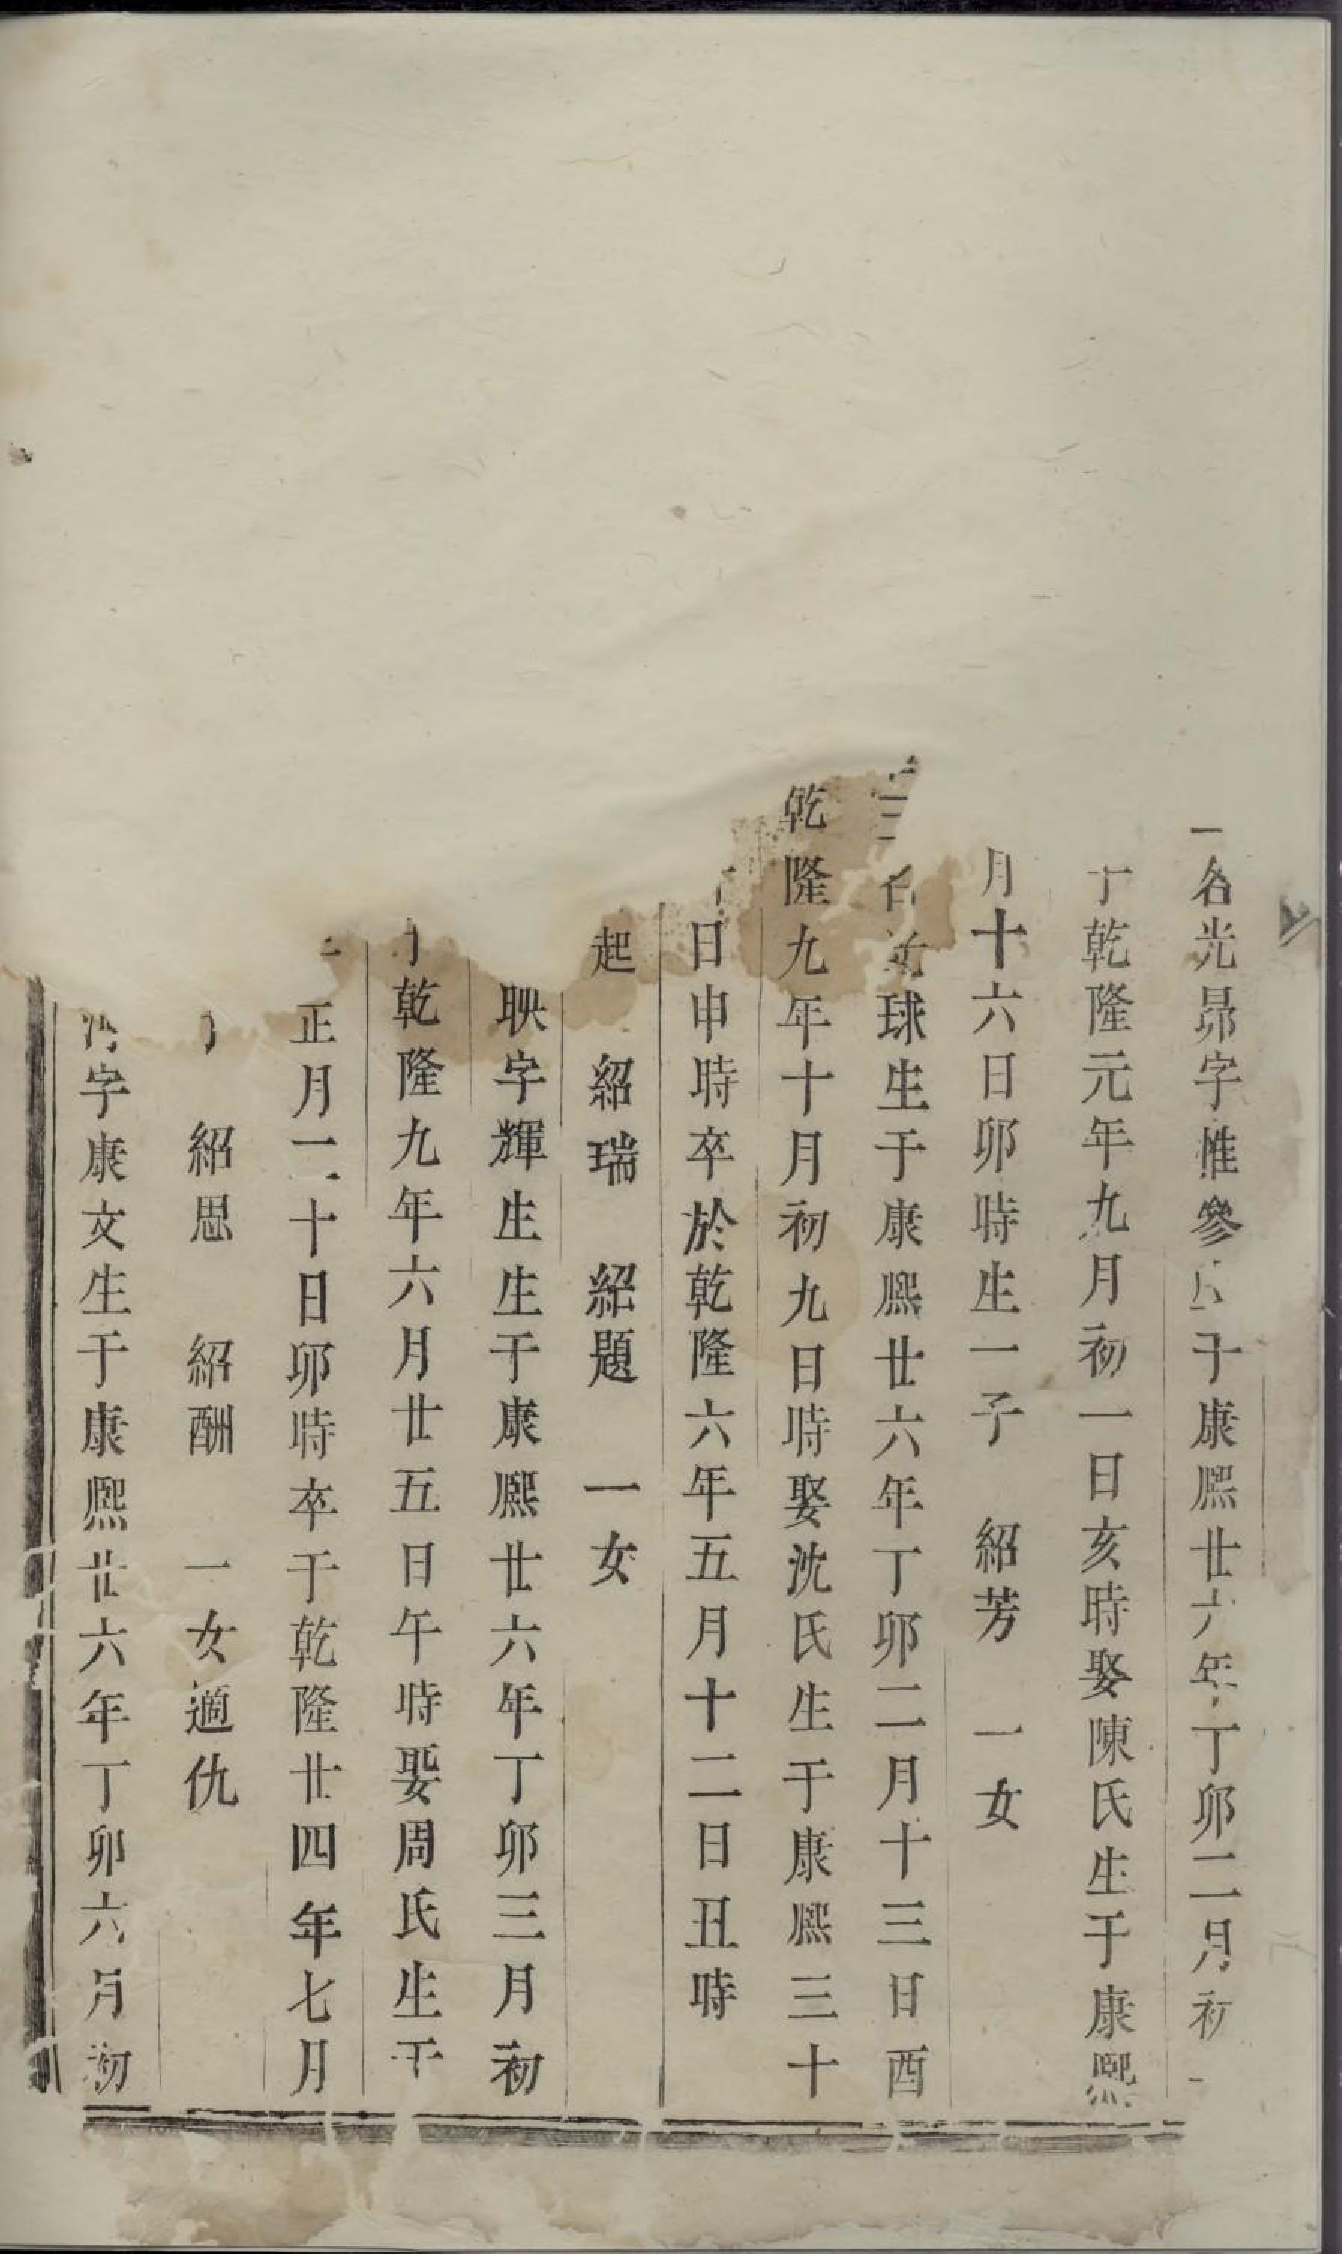 一名光昴字惟參生于康熙廿六年丁卯二月初
于乾隆元年九月初一日亥時娶陳氏生于康熙
月十六日卯時生一子　紹芳　一女
名光球生于康熙廿六年丁卯二月十三日酉
乾隆九年十月初九日時娶沈氏生于康熙三十
日申時卒於乾隆六年五月十二日丑時
起　紹瑞　紹題　一女
映字輝生生于康熙廿六年丁卯三月初
乾隆九年六月廿五日午時娶周氏生于
正月二十日卯時卒于乾隆廿四年七月
紹思　紹酬　一女適仇
字康文生于康熙廿六年丁卯六月初